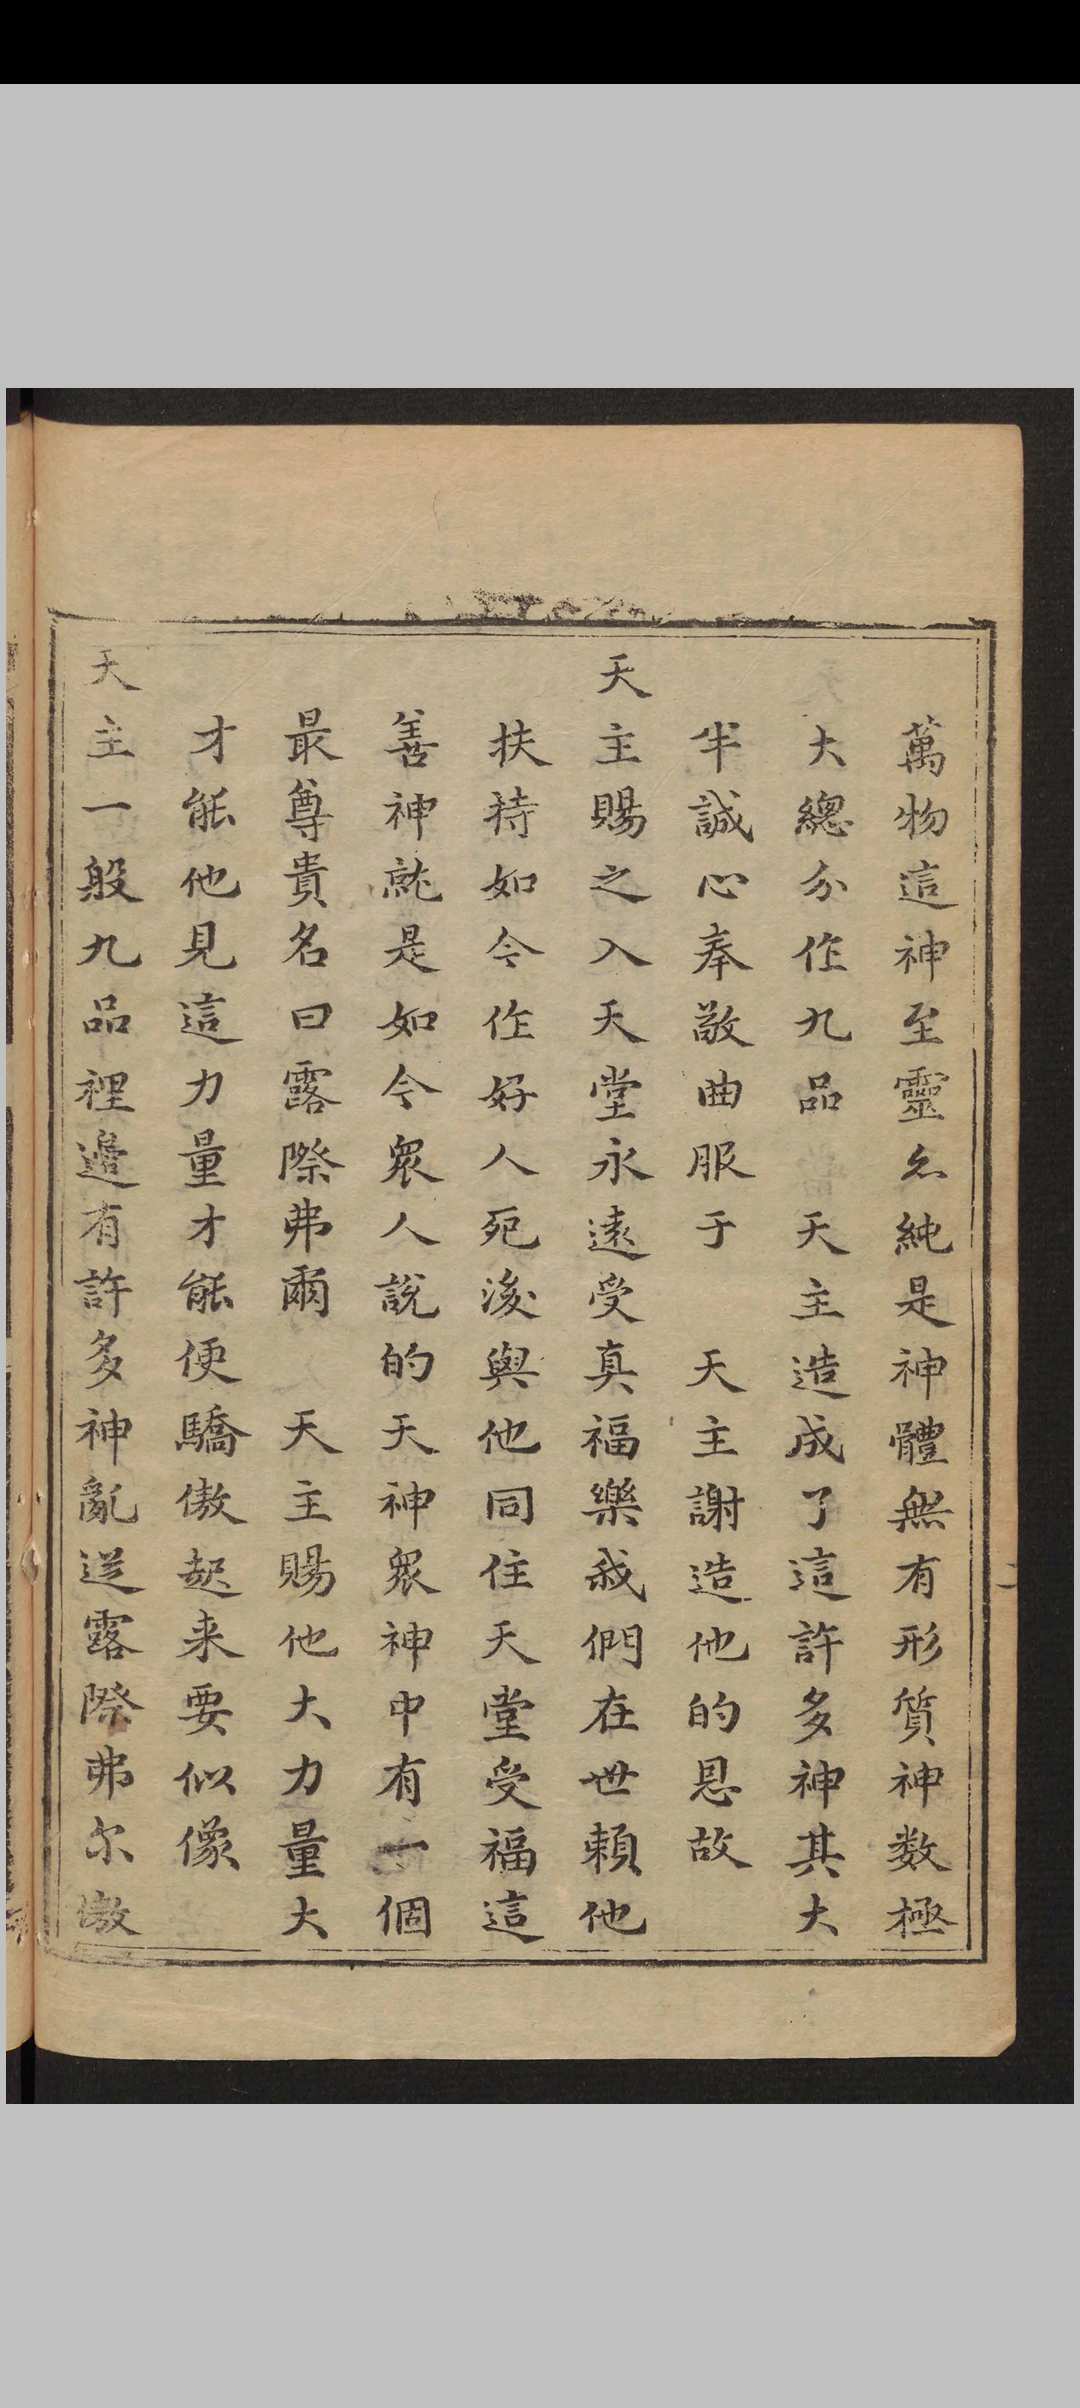 萬物這神至靈么純是神體無有形質神数極
大總分作九品　天主造成了這許多神其大
半誠心奉敬曲服于　天主謝造他的恩故
天主賜之入天堂永遠受真福樂我們在世賴他
扶持如今作好人死後與他同住天堂受福這
善神就是如今衆人說的天神衆神中有一個
最尊貴名曰露際弗爾　天主賜他大力量大
才能他見這力量才能便驕傲起来要似像
天主一般九品裡邉有許多神亂送露際弗尔傲